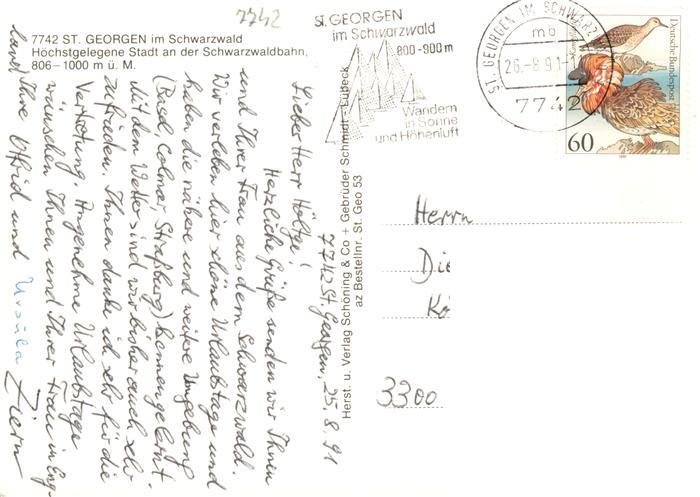 7742
7742 ST. GEORGEN im Schwarzwald
Höchstgelegene Stadt an der Schwarzwaldbahn,
806–1000 m ü. M.
7742 St. Georgen, 25.8.91
Lieber Herr Höltge!
Herzliche Grüße senden wir Ihnen
und Ihrer Frau aus dem Schwarzwald.
Wir verleben hier schöne Urlaubstage und
haben die nähere und weitere Umgebung
(Basel, Colmar, Straßburg) kennengelernt.
Mit dem Wetter sind wir bisher auch sehr
zufrieden. Ihnen danke ich sehr für die
Vertretung. Angenehme Urlaubstage
wünschen Ihnen und Ihrer Frau in Eng-
land Ihre Otfrid und Ursula Ziern
Herst. u. Verlag Schöning & Co + Gebrüder Schmidt - Lübeck
az Bestellnr. St. Geo 53
ST. GEORGEN
im Schwarzwald
800-900 m
Wandern
in Sonne
und Höhenluft
ST. GEORGEN IM SCHWARZW
mb
26.-8.91-1
7742
Deutsche Bundespost
60
Herrn
Die
Kö
3300